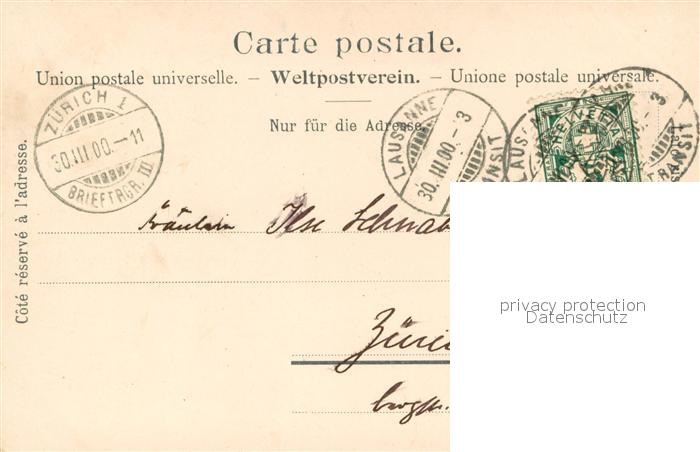 Carte postale.
Union postale universelle. – Weltpostverein. – Unione postale universale.
Nur für die Adresse.
Côté réservé à l'adresse.
ZÜRICH 1
30.III.00.–11
BRIEFTRGR. III
LAUSANNE
30.III.00.–3
TRANSIT
HELVETIA
Fräulein Ilse Schnab
Züric
privacy protection
Datenschutz